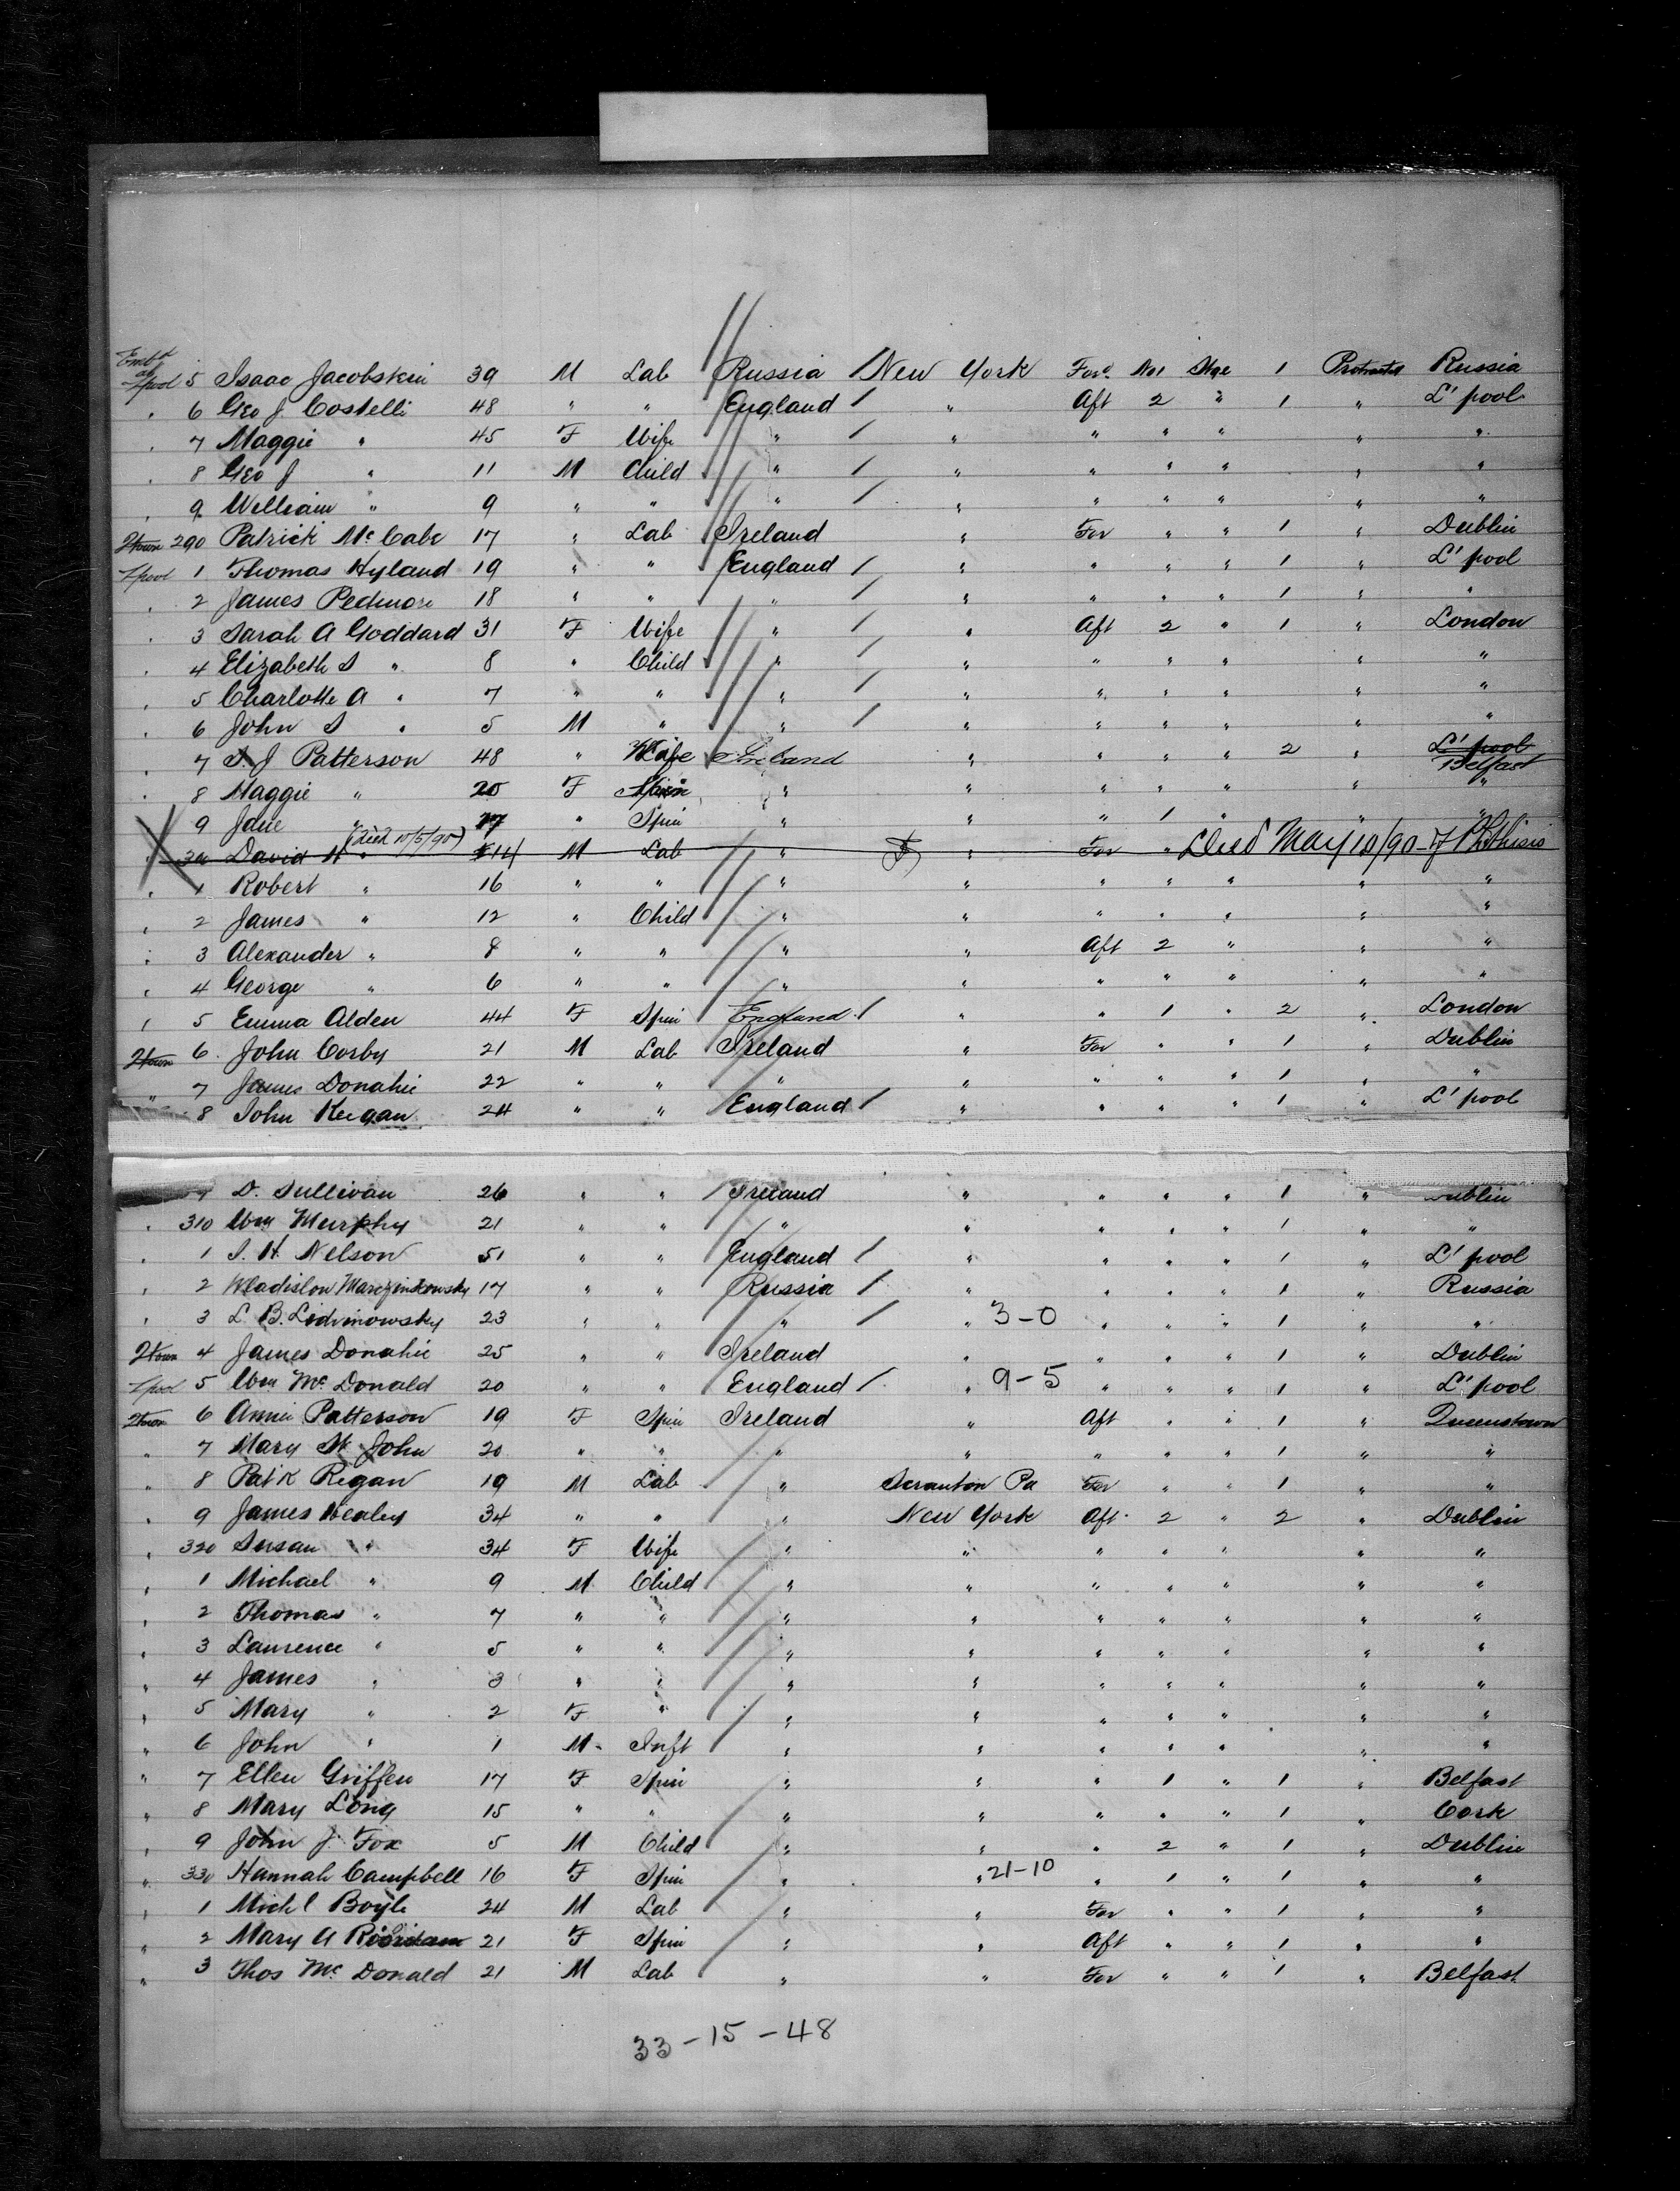 Embd at
L'pool 5 Isaac Jacobskin 39 M Lab Russia / New York For. No 1 Stge 1 Protracted Russia
" 6 Geo J. Costelli 48 " " England / " Aft 2 " 1 " L'pool
" 7 Maggie " 45 F Wife " / " " " " " "
" 8 Geo J " 11 M Child " / " " " " " "
" 9 William " 9 " " " / " " " " " "
Qtown 290 Patrick McCabe 17 " Lab Ireland " For " " 1 " Dublin
L'pool 1 Thomas Hyland 19 " " England / " " " " 1 " L'pool
" 2 James Pedmore 18 " " " / " " " " 1 " "
" 3 Sarah A Goddard 31 F Wife " / " Aft 2 " 1 " London
" 4 Elizabeth S " 8 " Child " / " " " " " "
" 5 Charlotte A " 7 " " " / " " " " " "
" 6 John S " 5 M " " / " " " " " "
" 7 J. J Patterson 48 " Wife Ireland " " " " 2 " L'pool
Belfast
" 8 Maggie " 20 F Spin " " " " " " "
" 9 Jane " 17 " Spin " " " 1 " " "
" 300 David H " (died 10/5/90) 14 M Lab " " For " Died May 10/90 of Phthisis
" 1 Robert " 16 " " " " " " " " "
" 2 James " 12 " Child " " " " " " "
" 3 Alexander " 8 " " " " Aft 2 " " "
" 4 George " 6 " " " " " " " " "
" 5 Emma Alden 44 F Spin England / " " 1 " 2 " London
Qtown 6 John Corby 21 M Lab Ireland " For " " 1 " Dublin
" 7 James Donahie 22 " " " " " " " 1 " "
8 John Keegan 24 " " England / " " " " 1 " L'pool
9 D. Sullivan 26 " " Ireland " " " " 1 " Dublin
" 310 Wm Murphy 21 " " " " " " " 1 " "
" 1 J. H. Nelson 51 " " England / " " " " 1 " L'pool
" 2 Wladislow Marczinkowsky 17 " " Russia / " " " " 1 " Russia
" 3 L. B. Lidvinowsky 23 " " " / " 3-0 " " " 1 " "
Qtown 4 James Donahie 25 " " Ireland " " " " 1 " Dublin
L'pool 5 Wm McDonald 20 " " England / " 9-5 " " " 1 " L'pool
Qtown 6 Annie Patterson 19 F Spin Ireland " Aft " " 1 " Queenstown
" 7 Mary St John 20 " " " " " " " 1 " "
" 8 Patk Regan 19 M Lab " Scranton Pa For " " 1 " "
" 9 James Healey 34 " " " New York Aft 2 " 2 " Dublin
" 320 Susan " 34 F Wife " " " " " " "
" 1 Michael " 9 M Child " " " " " " "
" 2 Thomas " 7 " " " " " " " " "
" 3 Laurence " 5 " " " " " " " " "
" 4 James " 3 " " " " " " " " "
" 5 Mary " 2 F " " " " " " " "
" 6 John " 1 M Inft " " " " " " "
" 7 Ellen Griffen 17 F Spin " " " 1 " 1 " Belfast
" 8 Mary Long 15 " " " " " " " 1 " Cork
" 9 John J. Fox 5 M Child " " " 2 " 1 " Dublin
" 330 Hannah Campbell 16 F Spin " " 21-10 " 1 " 1 " "
" 1 Michl Boyle 24 M Lab " " For " " 1 " "
" 2 Mary A Riordan 21 F Spin " " Aft " " 1 " "
" 3 Thos McDonald 21 M Lab " " For " " 1 " Belfast
33-15-48